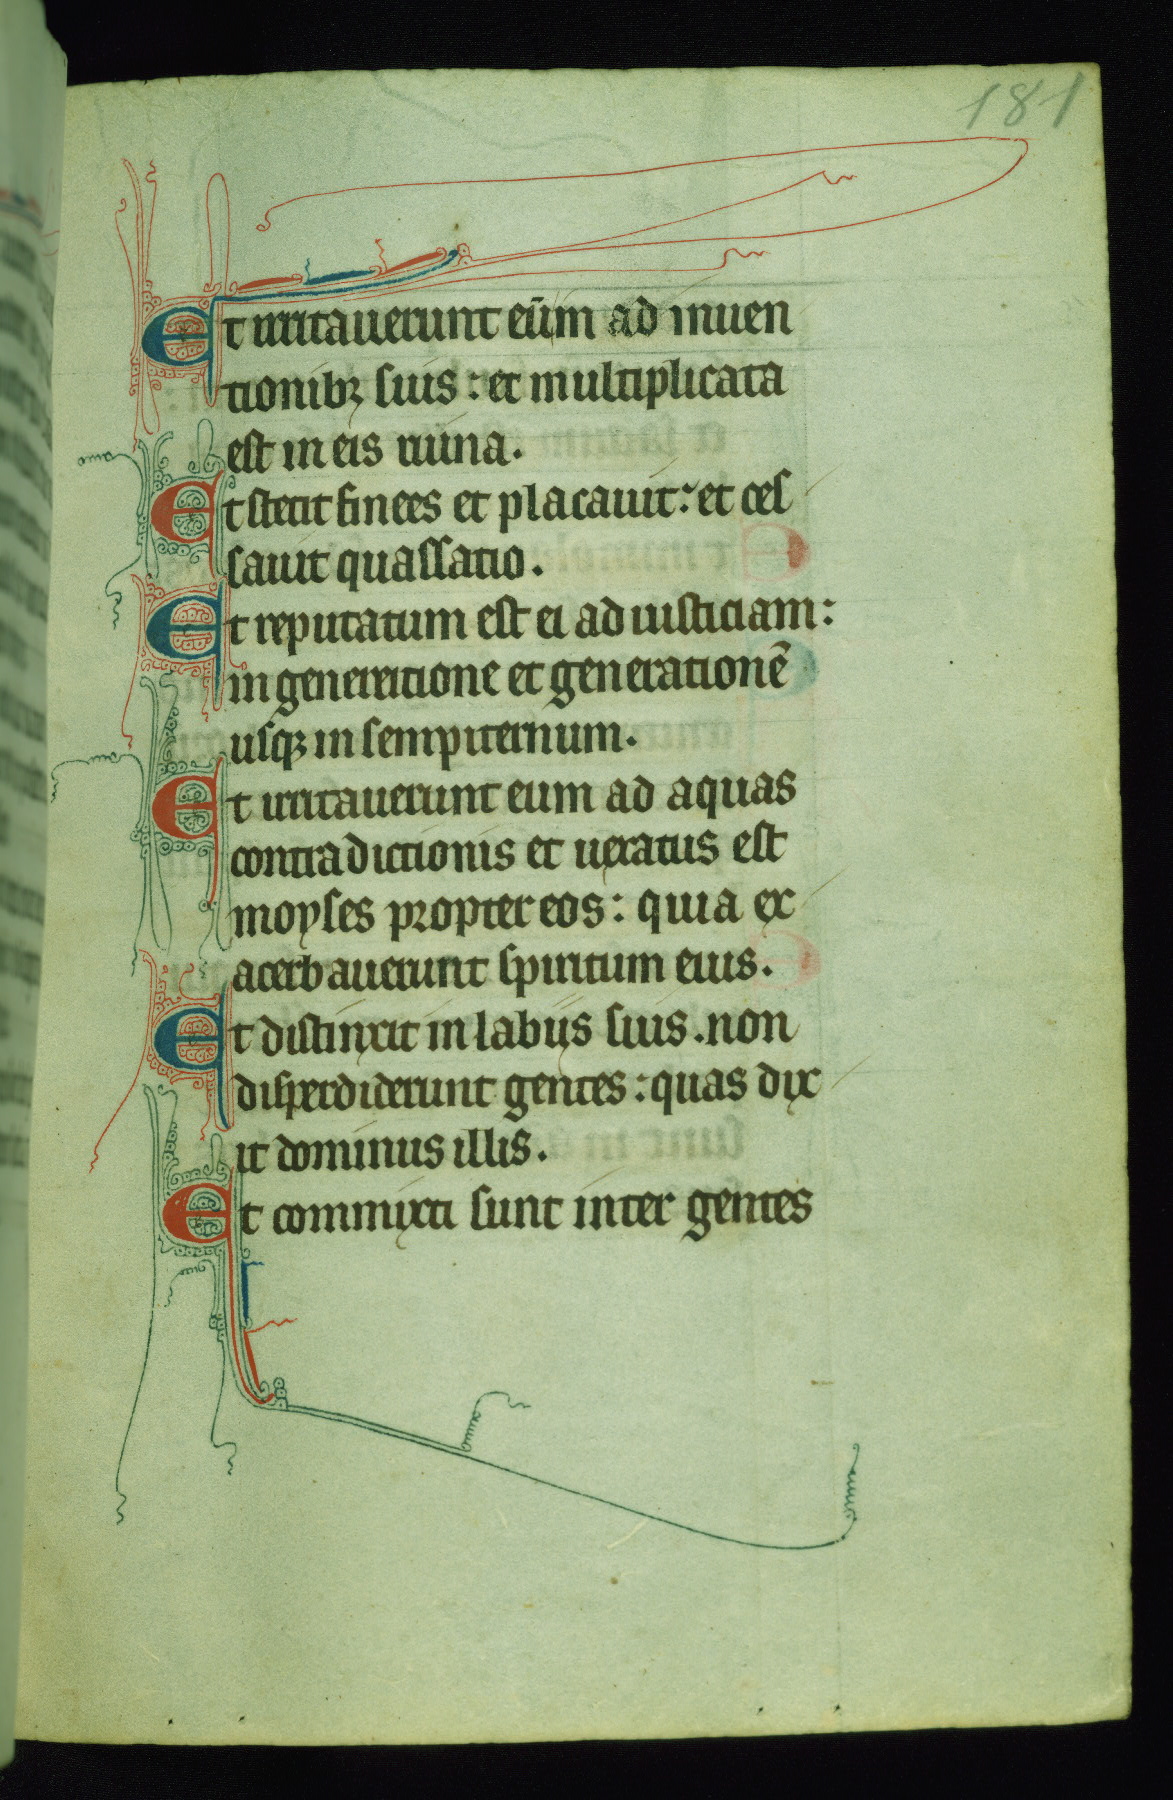 181
Et irritauerunt eūm ad inuen
tionibꝫ suis : et multiplicata
est in eis ruina.
Et stetit finees et placauit: et ces
sauit quassatio.
Et reputatum est ei ad iusticiam:
in generatione et generationē
usqꝫ in sempiternum.
Et irritauerunt eum ad aquas
contradictionis et uexatus est
moyses propter eos: quia ex
acerbauerunt spiritum eius.
Et distinxit in labijs suis .non
disperdiderunt gentes : quas dix
it dominus illis.
Et commixti sunt inter gentes